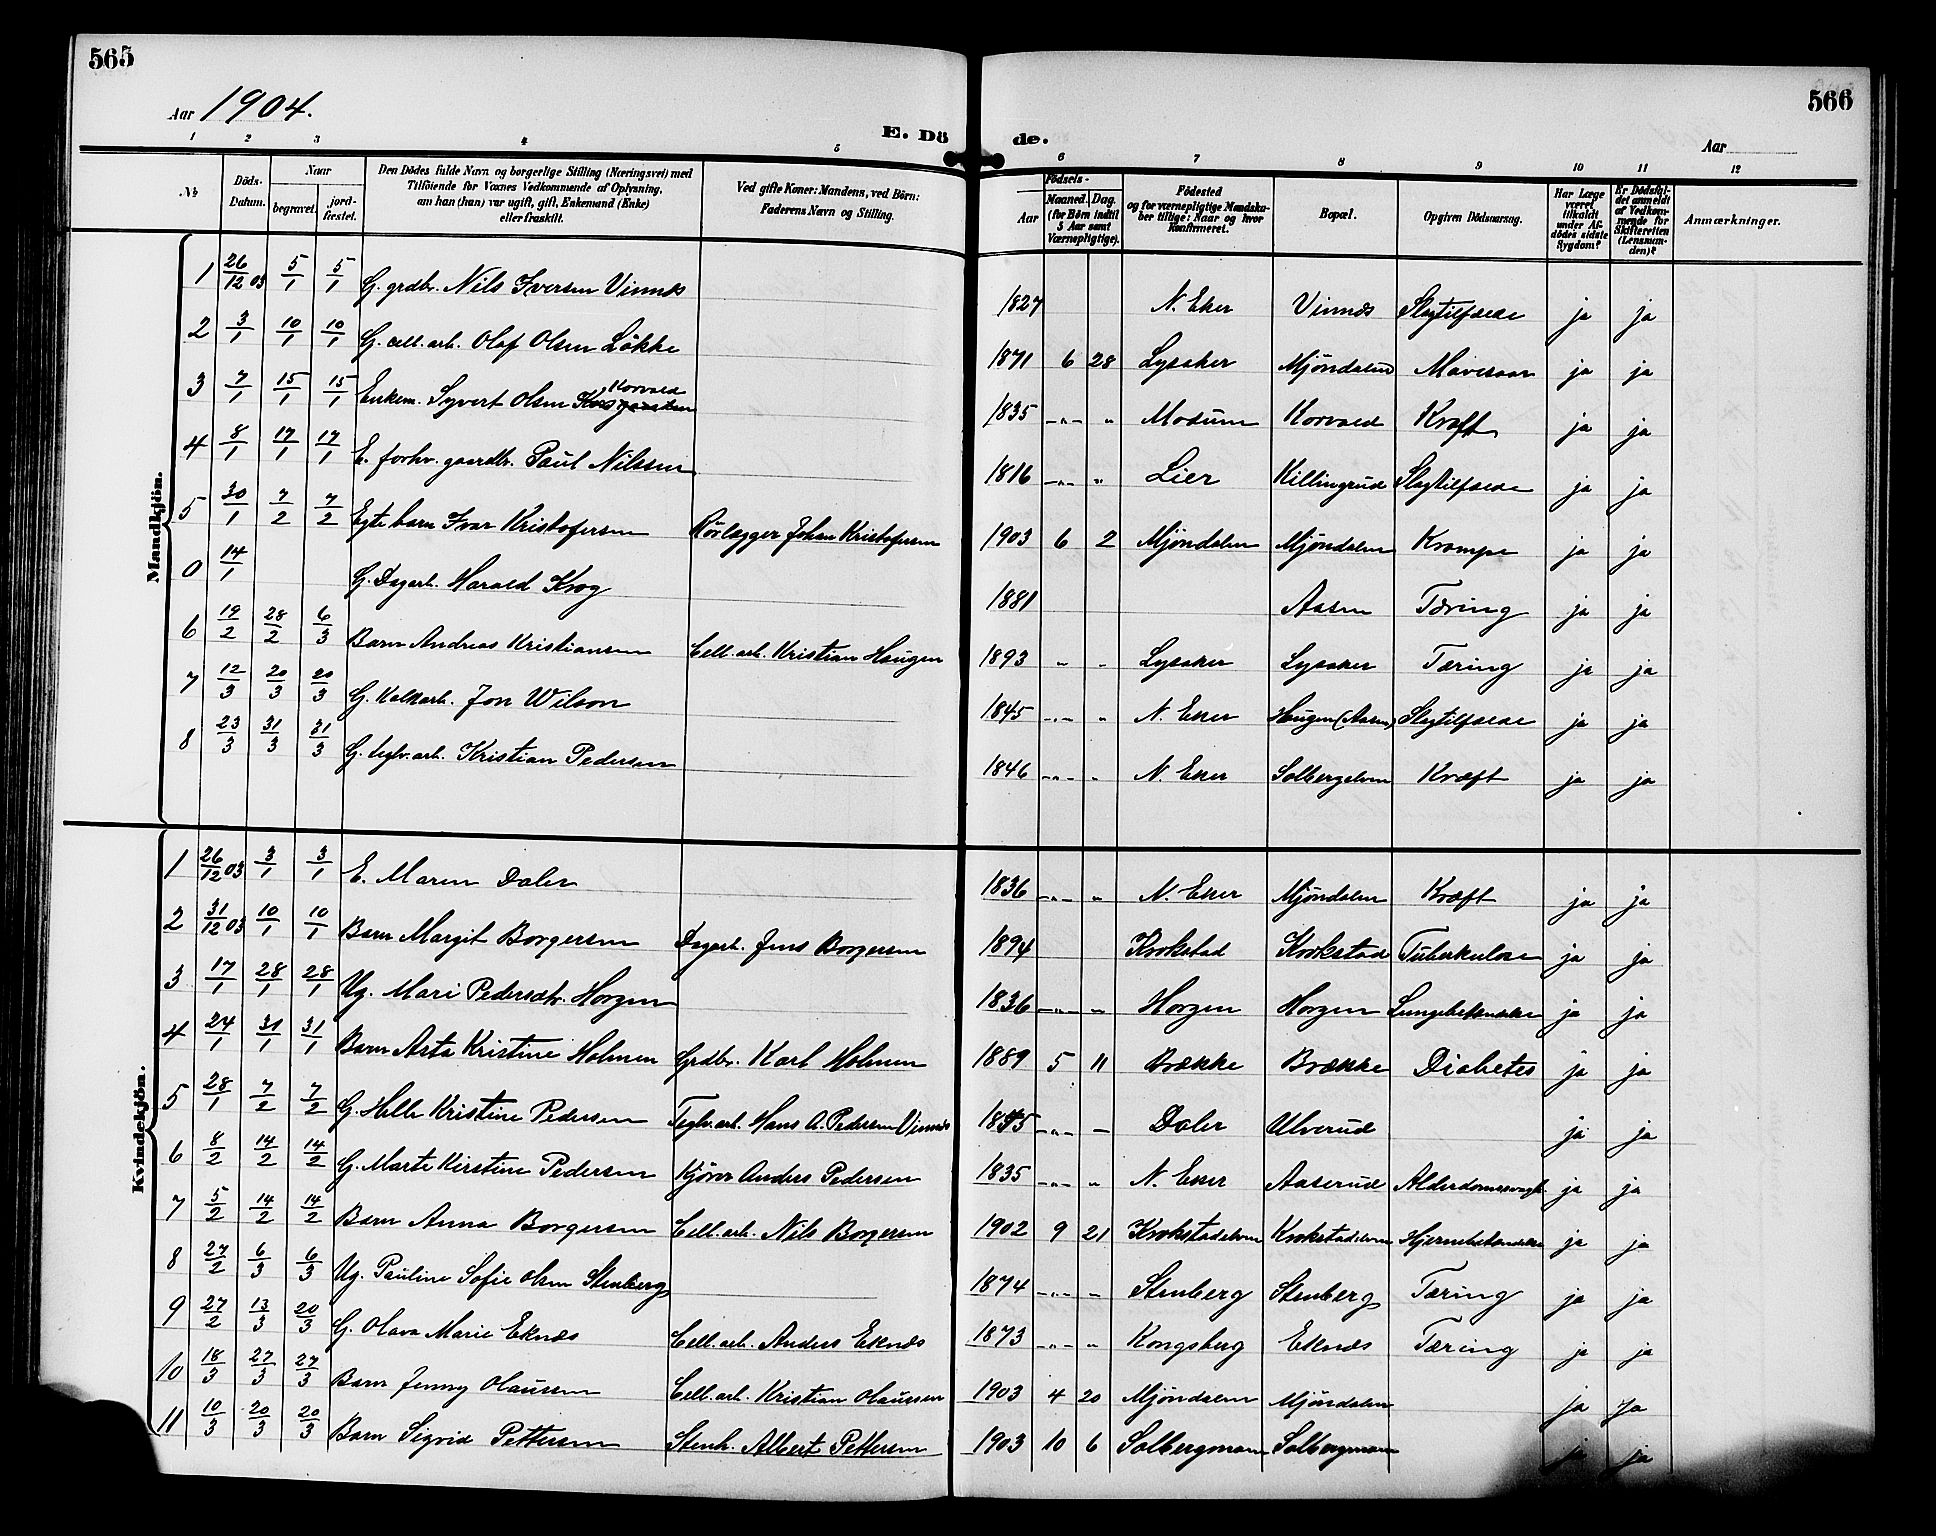 565
566
Aar 1904.
E. Dö de.
Aar
1 2 3 4 5 6 7 8 9 10 11 12
№
Döds-Datum.
Naar
begravet.
jord-fæstet.
Den Dödes fulde Navn og borgerlige Stilling (Næringsvei) med Tilföiende for Voxnes Vedkommende af Oplysning, om han (hun) var ugift, gift, Enkemand (Enke) eller fraskilt.
Ved gifte Koner: Mandens, ved Börn: Faderens Navn og Stilling.
Födsels-
Aar
Maaned. Dag.
(for Børn indtil 5 Aar samt Værnepligtige).
Födested og for værnepligtige Mandskaber tillige: Naar og hvor Konfirmeret.
Bopæl.
Opgiven Dödsaarsag.
Har Læge været tilkaldt under Afdödes sidste Sygdom?
Er Dödsfaldet anmeldt af Vedkommende for Skifteretten (Lensmanden)?
Anmærkninger.
Mandkjön.
1 26/12 03 5/1 5/1 G. grdbr. Nils Iversen Vinnæs 1827 N. Eker Vinnæs Slagtilfælde ja ja
2 3/1 10/1 10/1 G. cell. arb. Olaf Olsen Løkke 1871 6 28 Lysaker Mjøndalen Mavesaar ja ja
3 7/1 15/1 15/1 Enkem. Syvert Olsen Korvald 1835 -"- " Modum Korvald Kræft ja ja
4 8/1 17/1 17/1 E. forhv. gaardbr. Paul Nilssen 1816 -"- " Lier Killingrud Slagtilfælde ja ja
5 30/1 7/2 7/2 Egte barn Ivar Kristofersen Rørlægger Johan Kristofersen 1903 6 2 Mjøndalen Mjøndalen Krampe ja ja
0 14/1 G. Dagarb. Harald Krog 1881 Aasen Tæring ja ja
6 19/2 28/2 6/3 Barn Andreas Kristiansen Cell. arb. Kristian Haugen 1893 " " Lysaker Lysaker Tæring ja ja
7 12/3 20/3 20/3 G. Kalkarb. Jon Wilson 1845 -"- " N. Eker Haugen (Aasen) Slagtilfælde ja ja
8 23/3 31/3 31/3 G. teglv. arb. Kristian Pedersen 1846 -"- " N. Eker Solbergelven Kræft ja ja
Kvindekjön.
1 26/12 03 3/1 3/1 E. Maren Daler 1836 -"- " N. Eker Mjøndalen Kræft ja ja
2 31/12 03 10/1 10/1 Barn Margit Borgersen Dagarb. Jens Borgersen 1894 Krokstad Krokstad Tuberkulose ja ja
3 17/1 28/1 28/1 Ug. Mari Pedersdtr. Horgen 1836 -"- " Horgen Horgen Lungebetændelse ja ja
4 24/1 31/1 31/1 Barn Asta Kristine Holmen Grdbr. Karl Holmen 1889 5 11 Brække Brække Diabetes ja ja
5 28/1 7/2 7/2 G. Helle Kristine Pedersen Teglv. arb. Hans A. Pedersen Vinnæs -"- - Daler Ulverud ja ja
6 8/2 14/2 14/2 G. Marte Kirstine Pedersen Kjører Anders Pedersen 1835 -"- " N. Eker Aaserud Alderdomssvagh. ja ja
7 5/2 14/2 14/2 Barn Anna Borgersen Cell. arb. Nils Borgersen 1902 9 21 Krokstadelven Krokstadelven Hjernebetændelse ja ja
8 27/2 6/3 6/3 Ug. Pauline Sofie Olsen Stenberg 1874 -"- - Stenberg Stenberg Tæring ja ja
9 27/2 13/3 20/3 G. Olava Marie Eknæs Cell. arb. Anders Eknæs 1873 -"- " Kongsberg Eknæs Tæring ja ja
10 18/3 27/3 27/3 Barn Jenny Olaussen Cell. arb. Kristian Olaussen 1903 4 20 Mjøndalen Mjøndalen ja ja
11 10/3 20/3 20/3 Barn Sigrid Pettersen Stenh. Albert Pettersen 1903 10 6 Solbergmoen Solbergmoen ja ja